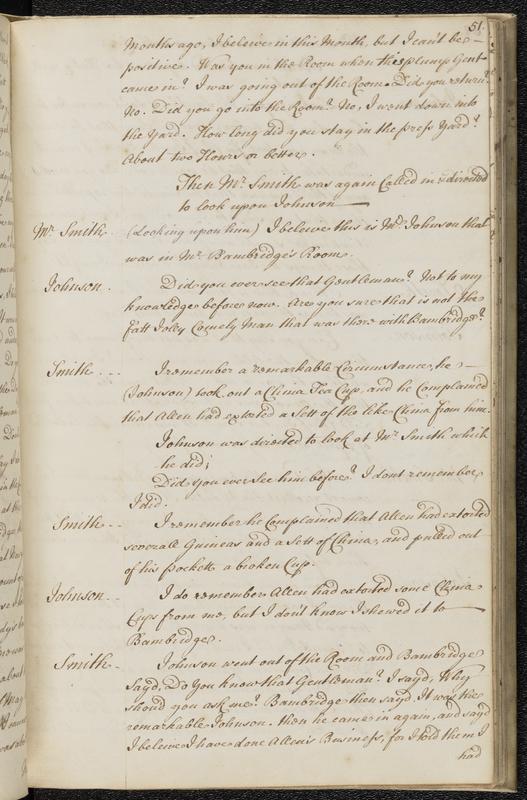 51.
Months ago, I beleive in this Month, but I can't be
positive. Was you in the Room when this plump Gent
came in? I was going out of the Room. Did you return?
No. Did you go into the Room? No, I went down into
the Yard. How long did you stay in the press Yard?
About two Hours or better.
Then Mr. Smith was again Called in & directed
to look upon Johnson
Mr. Smith. (Looking upon him) I beleive this is Mr. Johnson that
was in Mr. Bambridge's Room.
Johnson. Did you ever see that Gentleman? Not to my
knowledge before now. Are you sure that is not the
fatt Jolly Comely Man that was there with Bambridge?
Smith. I remember a remarkable Circumstance, he
(Johnson) took out a China Tea Cup, and he Complained
that Alten had extorted a Sett of the like China from him.
Johnson was directed to look at Mr. Smith which
he did;
Did you ever see him before? I dont remember
I did.
Smith I remember he Complained that Alten had extorted
severall Guineas and a Sett of China, and pulled out
of his Pockett a broken Cup.
Johnson I do remember Alten had extorted some China
Cups from me, but I don't know I shewed it to
Bambridge.
Smith Johnson went out of the Room and Bambridge
sayd, Do You know that Gentleman? I sayd, Why
should you ask me? Bambridge then sayd, It was the
remarkable Johnson. then he came in again, and sayd
I beleive I have done Alten's Business, for I told them I
had